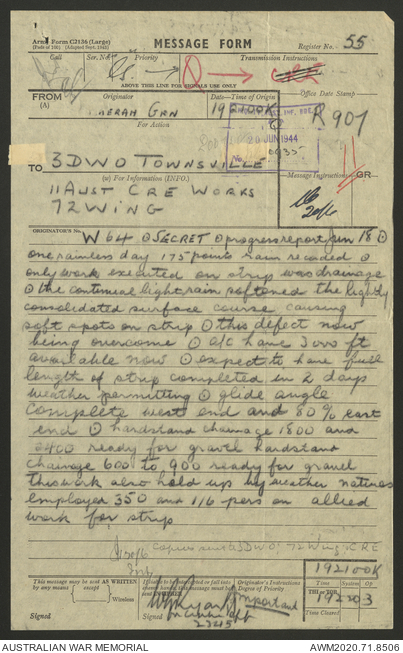 Army Form C2136 (Large)
(Pads of 100) (Adapted Sept. 1942)
MESSAGE FORM
Register No. 55
Call
Ser. No.
Priority
Transmission Instructions
ABOVE THIS LINE FOR SIGNALS USE ONLY
FROM
(A)
Originator
Date—Time of Origin
Office Date Stamp
ERAH GRN
192100K
R 907
For Action
20 JUN 1944
TO 3DWO TOWNSVILLE
(w) For Information (INFO.)
Message Instructions
GR
11 AUST CRE WORKS
72 WING
20/6
ORIGINATOR'S No.
W 64 ⊙ SECRET ⊙ progress report Jun 18 ⊙
one rainless day 175 points rain recorded ⊙
only work executed on strip was drainage
⊙ the continual light rain softened the lightly
consolidated surface course causing
soft spots on strip ⊙ this defect now
being overcome ⊙ a/c have 3000 ft
available now ⊙ expect to have full
length of strip completed in 2 days
weather permitting ⊙ glide angle
complete west end and 80% east
end ⊙ hardstand chainage 1800 and
2400 ready for gravel hardstand
chainage 600 to 900 ready for gravel
this work also held up by weather natives
employed 350 and 116 pers on allied
work for strip
copies sent 3DWO, 72 Wing, CRE
This message may be sent AS WRITTEN
by any means
except
Wireless
Signed
If liable to be intercepted or fall into
enemy hands, this message must be sent
IN CIPHER
Signed
Originator's Instructions
Degree of Priority
Important
2345
192100K
Time
System
Op
192303
Time Cleared
AUSTRALIAN WAR MEMORIAL
AWM2020.71.8506